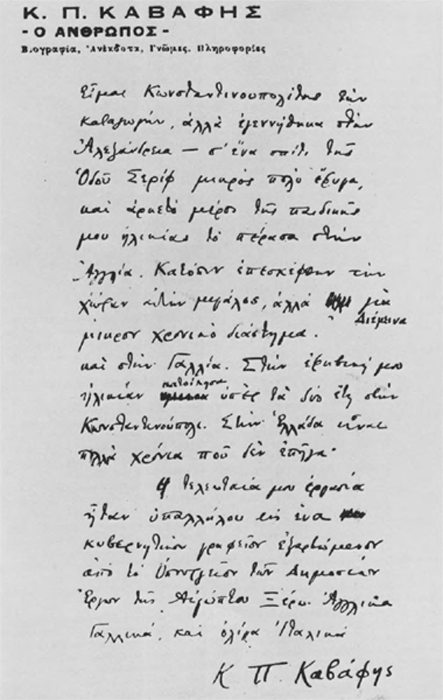 Κ. Π. ΚΑΒΑΦΗΣ
- Ο ΑΝΘΡΩΠΟΣ -
Βιογραφία, Ἀνέκδοτα, Γνῶμες, Πληροφορίες
Εἶμαι Κωνσταντινουπολίτης τὴν
καταγωγήν, ἀλλὰ ἐγεννήθηκα στὴν
Ἀλεξάνδρεια — σ' ἕνα σπίτι τῆς
Ὁδοῦ Σερίφ· μικρὸς πολὺ ἔφυγα,
καὶ ἀρκετὸ μέρος τῆς παιδικῆς
μου ἡλικίας τὸ πέρασα στὴν
Ἀγγλία. Κατόπιν ἐπεσκέφθην τὴν
χώραν αὐτὴν μεγάλος, ἀλλὰ γιὰ
μικρὸν χρονικὸ διάστημα. Διέμεινα
καὶ στὴν Γαλλία. Στὴν ἐφηβικήν μου
ἡλικίαν κατοίκησα ὑπὲρ τὰ δύο ἔτη στὴν
Κωνσταντινούπολι. Στὴν Ἑλλάδα εἶναι
πολλὰ χρόνια ποῦ δὲν ἐπῆγα.
Ἡ τελευταία μου ἐργασία
ἦταν ὑπαλλήλου εἰς ἕνα
κυβερνητικὸν γραφεῖον ἐξαρτώμενον
ἀπὸ τὸ Ὑπουργεῖον τῶν Δημοσίων
Ἔργων τῆς Αἰγύπτου. Ξέρω Ἀγγλικά,
Γαλλικά, καὶ ὀλίγα Ἰταλικά
Κ Π Καβάφης